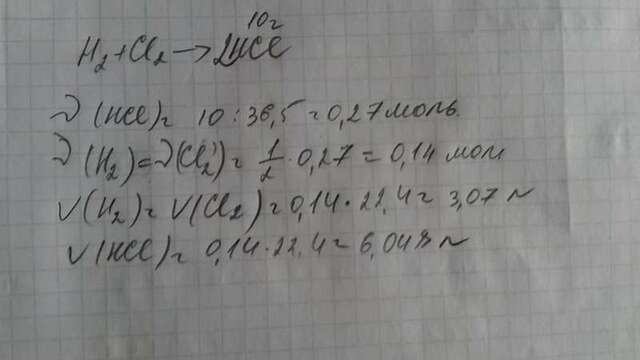 10г
H₂ + Cl₂ → 2HCl
ν(HCl) = 10 : 36,5 = 0,27 моль
ν(H₂) = ν(Cl₂) = 1/2 · 0,27 = 0,14 мол
V(H₂) = V(Cl₂) = 0,14 · 22,4 = 3,07 л
V(HCl) = 0,14 · 22,4 = 6,048 л